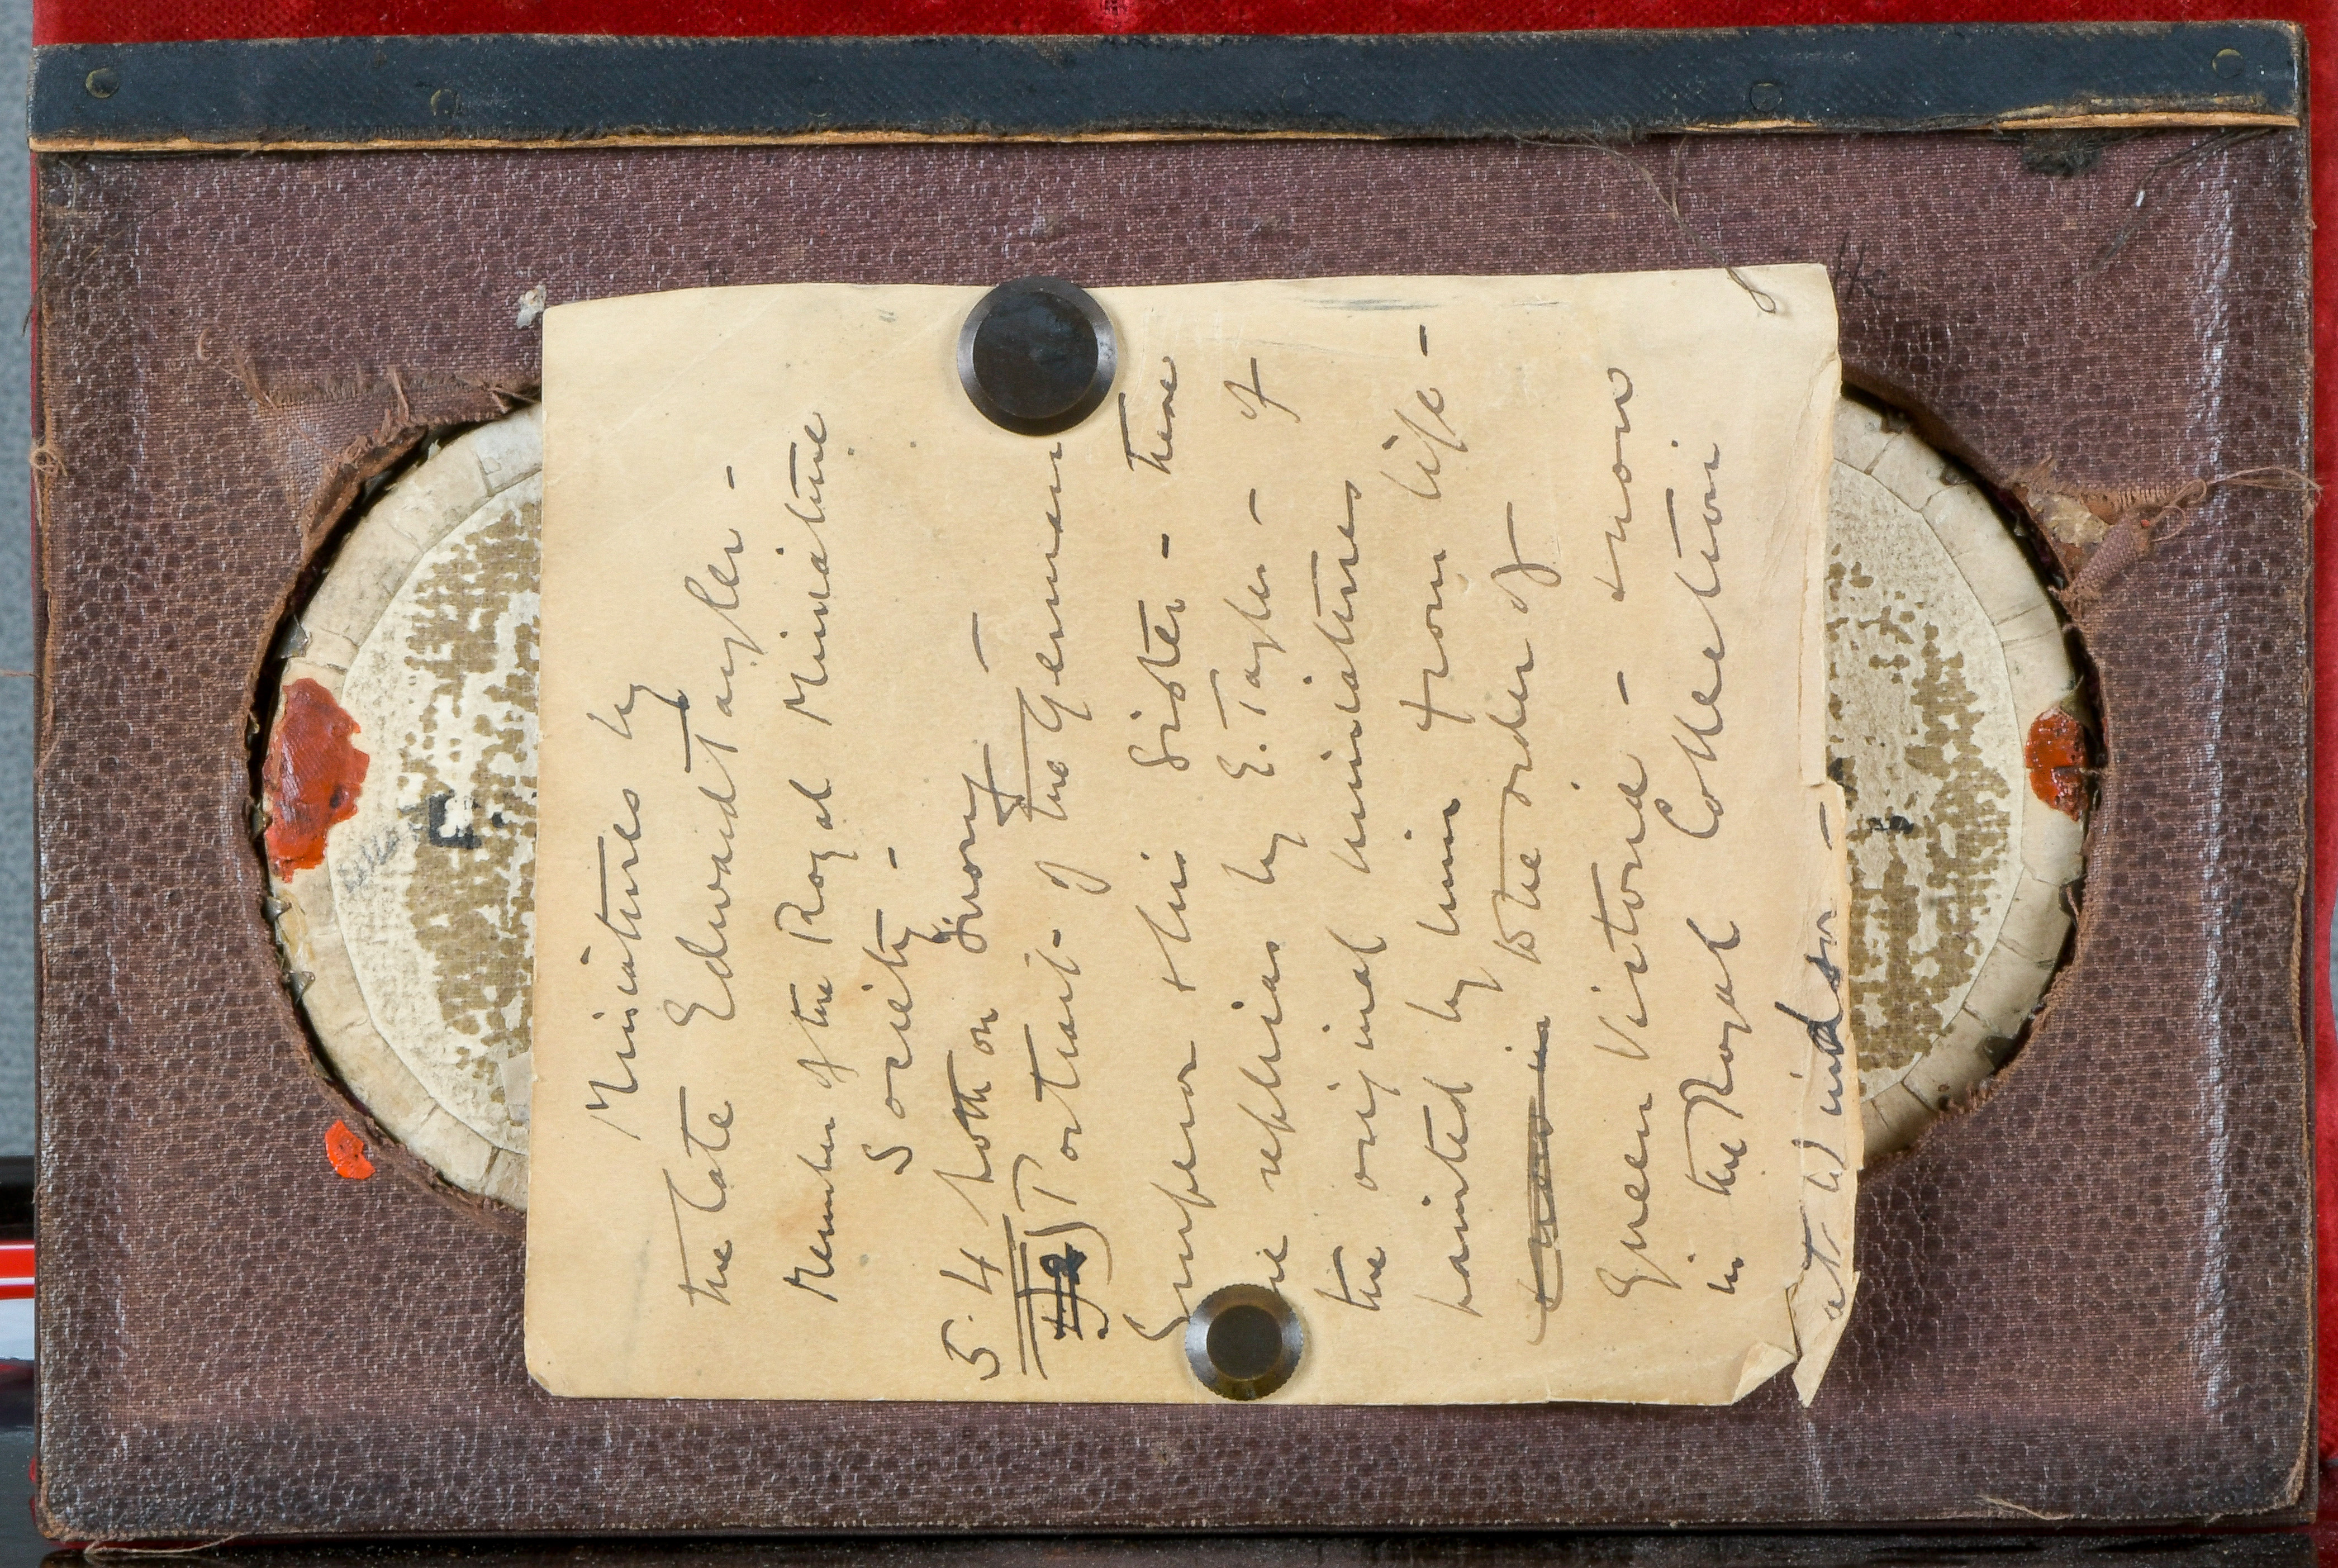 Miniatures by
the late Edward Tayler -
Member of the Royal Miniature
Society -
5. 4 both on Ivory -
Portrait of the German
Emperor + his Sister - these
are replicas by E. Tayler - of
the original miniatures
painted by him from life -
to the order of
Queen Victoria - + now
in the Royal Collection
at Windsor -